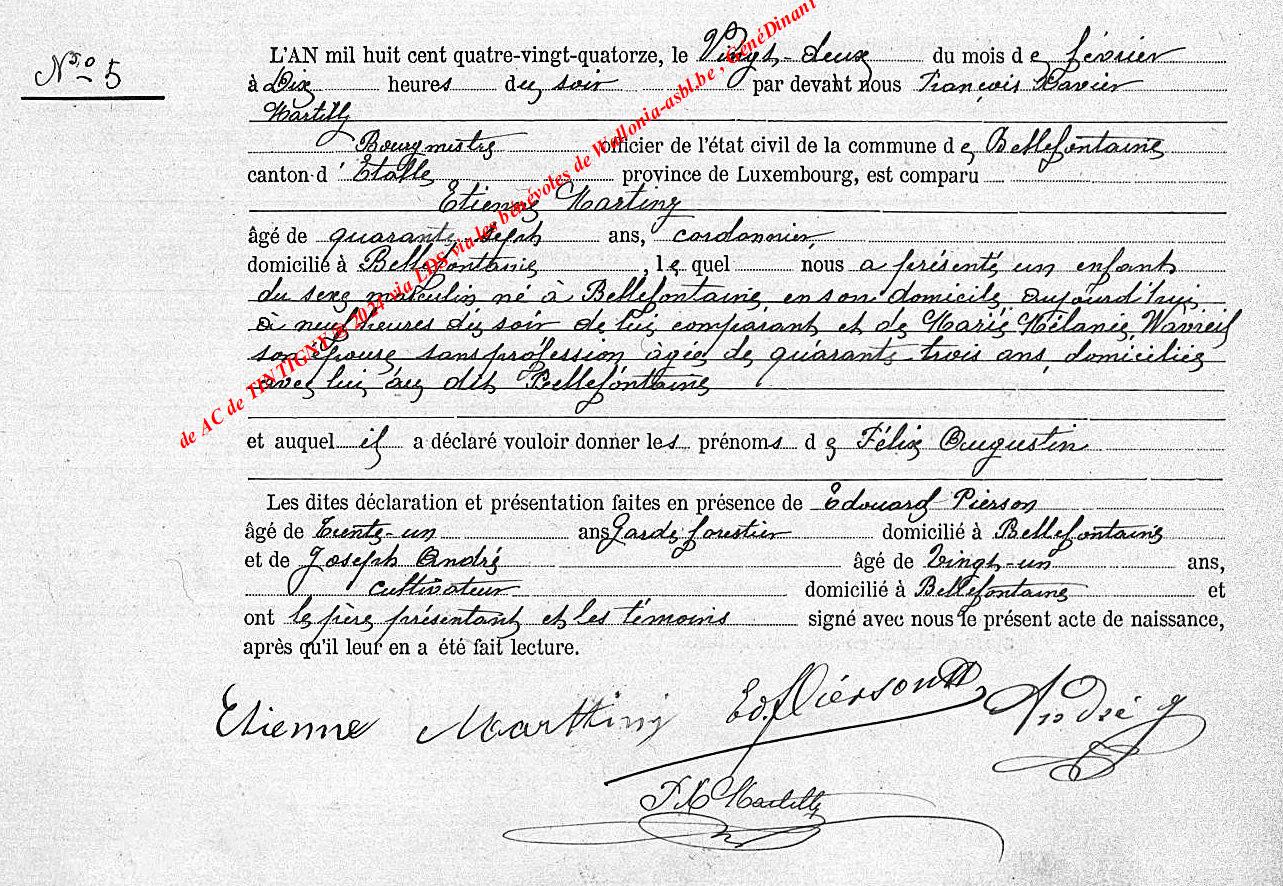 N.ro 5
L'AN mil huit cent quatre-vingt-quatorze, le Vingt-deux du mois de février
à Dix heures du soir par devant nous François Xavier
Martilly
Bourgmestre officier de l'état civil de la commune de Bellefontaine
canton d'Etalle province de Luxembourg, est comparu
Etienne Martiny
âgé de quarante sept ans, cordonnier
domicilié à Bellefontaine, lequel nous a présenté un enfant
du sexe masculin né à Bellefontaine en son domicile aujourd'hui
à neuf heures du soir de lui comparant et de Marie Mélanie Wavreil
son épouse sans profession âgée de quarante trois ans, domiciliée
avec lui au dit Bellefontaine
et auquel il a déclaré vouloir donner les prénoms de Félix Augustin
Les dites déclaration et présentation faites en présence de Edouard Pierson
âgé de Trente-un ans Garde forestier domicilié à Bellefontaine
et de Joseph André âgé de Vingt-un ans,
cultivateur domicilié à Bellefontaine et
ont le père présentant et les témoins signé avec nous le présent acte de naissance,
après qu'il leur en a été fait lecture.
Etienne Marthiny Ed. Pierson André J
F X Martilly
de AC de TINTIGNY © 2024 via LDS via les bénévoles de Wallonia-asbl.be, GénéDinant